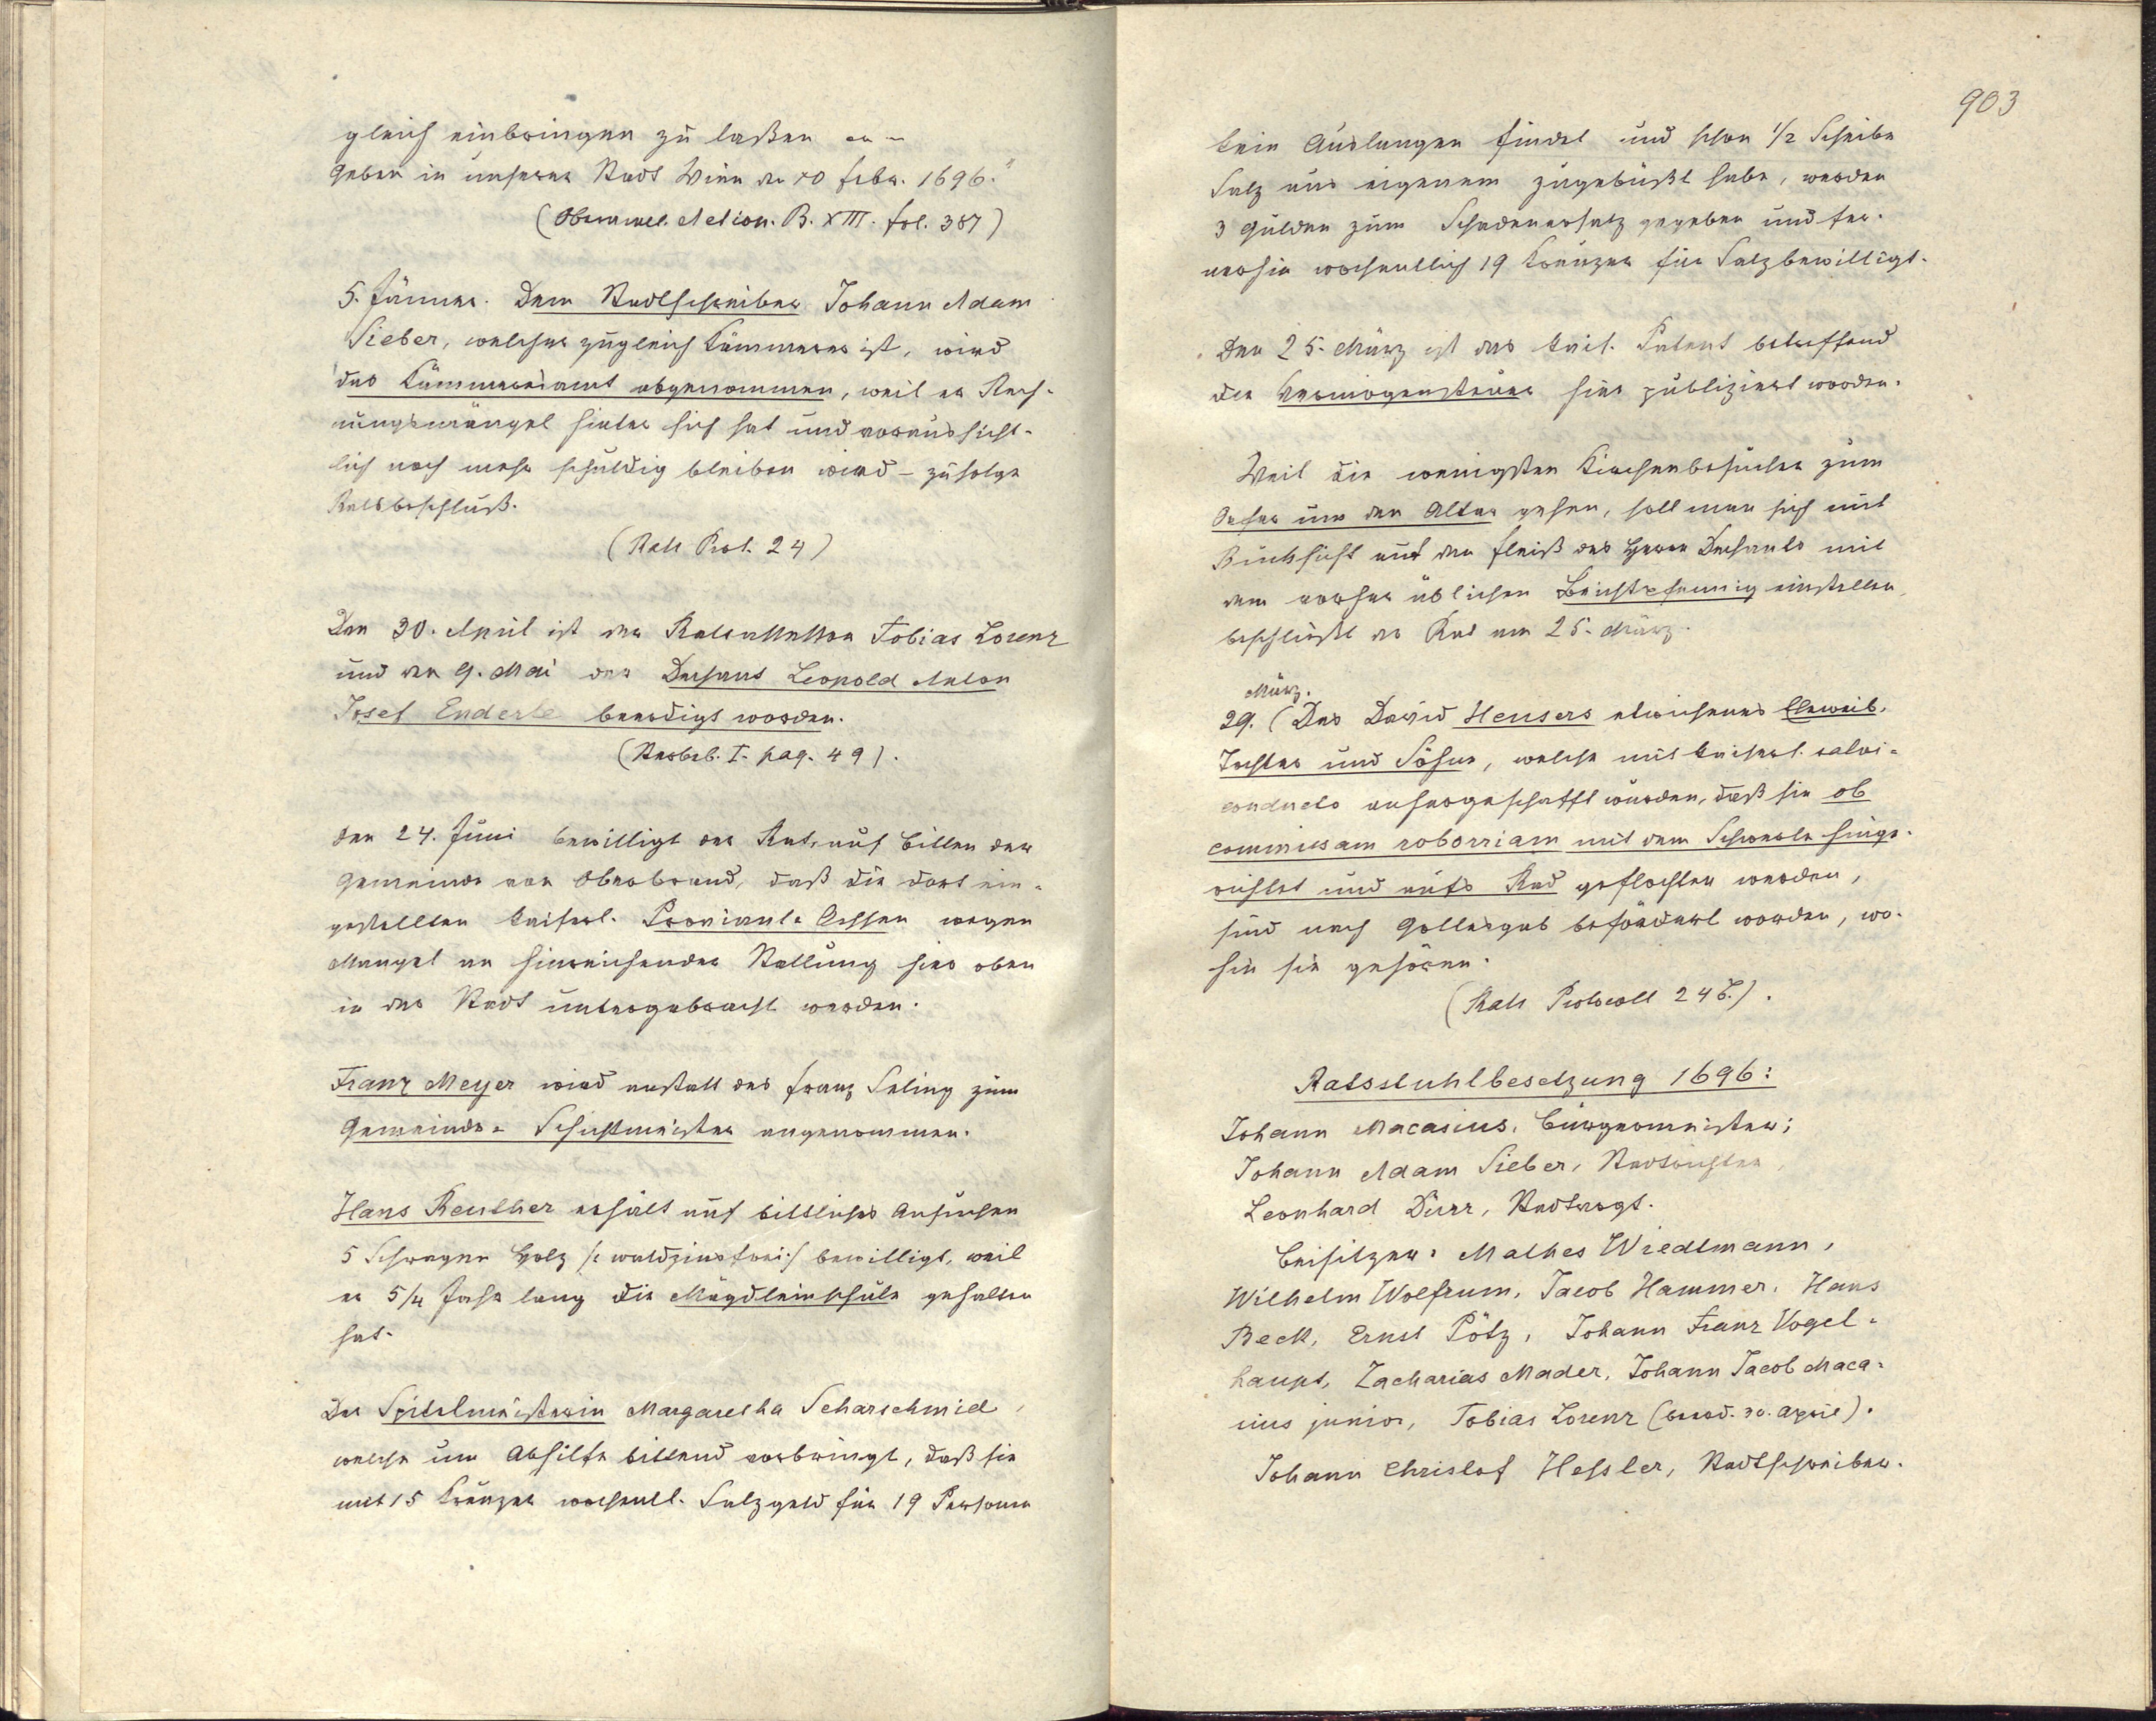 gleich einbringen zu laßen
Geben in unserer Stadt Wien den 10 febr. 1696."
(Oberamtl. Action. B. XIII. fol. 387)
5. Jänner. Dem Stadtschreiber Johann Adam
Sieber, welcher zugleich Kämmerer ist, wird
das Kämmereramt abgenommen, weil er Rech-
nungsmängel hinter sich hat und voraussicht-
lich noch mehr schuldig bleiben wird – zufolge
Ratsbeschluß.
(Rats Prot. 24)
Den 30. April ist der Ratsassessor Tobias Lorenz
und den 9. Mai der Dechant Leopold Anton
Josef Enderle beerdigt worden.
(Sterbeb. I. pag. 49).
Den 24. Juni bewilligt der Rat, auf Bitten der
Gemeinde von Oberbrand, daß die dort ein-
gestellten kaiserl. Proviant-Ochsen wegen
Mangel an hinreichender Stallung hier oben
in der Stadt untergebracht werden.
Franz Meyer wird anstatt des Franz Seling zum
Gemeinde-Schichtmeister angenommen.
Hans Reuther erhält auf bittliches Ansuchen
5 Schragen Holz /: waldzinsfrei :/ bewilligt, weil
er 5/4 Jahr lang die Mägdleinschule gehalten
hat.
Der Spitelmeisterin Margaretha Scharschmid,
welche um Abhilfe bittend vorbringt, daß sie
mit 15 Kreuzer wochentl. Salzgeld für 19 Personen
903
kein Auslangen findet und schon 1/2 Scheibe
Salz aus eigenem zugebüßt habe, werden
3 Gulden zum Schadenersatz gegeben und fer-
nerhin wochentlich 19 Kreuzer für Salz bewilligt.
Den 25. März ist das kais. Patent betreffend
der Vermögensteuer hier publiziert worden.
Weil die wenigsten Kirchenbesucher zum
Opfer um den Altar gehen, soll man sich mit
Rücksicht auf den Fleiß des Herrn Dechants mit
dem vorher üblichen Beichtpfennig einstellen,
beschließt der Rat am 25. März.
März.
29. (Des David Heusers entwichenes Eheweib,
Tochter und Söhne, welche mit kaiserl. salvi-
conducto anhergeschafft wurden, daß sie ob
commissam roborriam mit dem Schwerte hinge-
richtet und aufs Rad geflochten werden,
sind nach Gottesgab befördert worden, wo-
hin sie gehören.
(Rats Protocoll 24 b.).
Ratsstuhlbesetzung 1696:
Johann Macasius, Bürgermeister;
Johann Adam Sieber, Stadtrichter,
Leonhard Dürr, Stadtvogt.
Beisitzer: Mathes Wiedtmann,
Wilhelm Wolfrum, Jacob Hammer, Hans
Beck, Ernst Pötz, Johann Franz Vogel-
haupt, Zacharias Mader, Johann Jacob Maca-
sius junior, Tobias Lorenz (beerd. 30. April).
Johann Christof Hessler, Stadtschreiber.